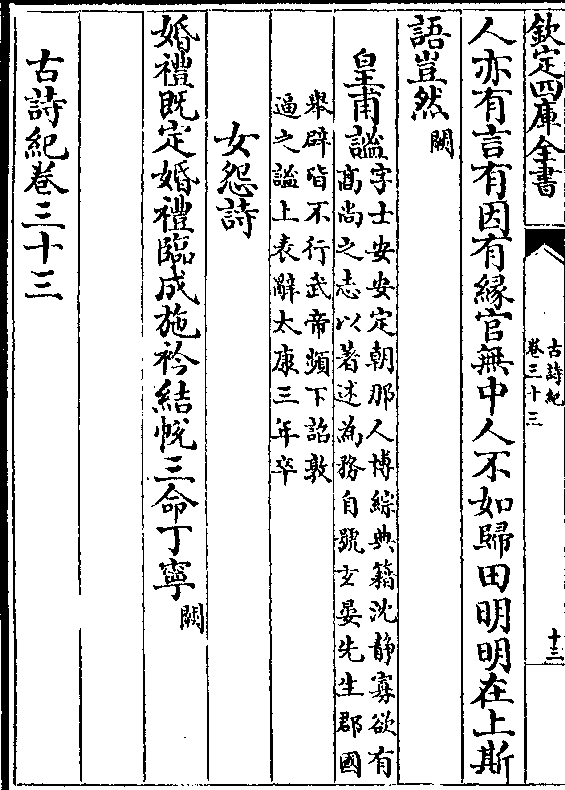 欽定四庫全書
古詩紀
卷三十三
十三
人亦有言有因有緣官無中人不如歸田明明在上斯
語豈然闕
皇甫謐字士安安定朝那人博綜典籍沈靜寡欲有
高尚之志以著述為務自號玄晏先生郡國
舉辟皆不行武帝頻下詔敦
逼之謐上表辭太康三年卒
女怨詩
婚禮既定婚禮臨成施衿結帨三命丁寧闕
古詩紀卷三十三